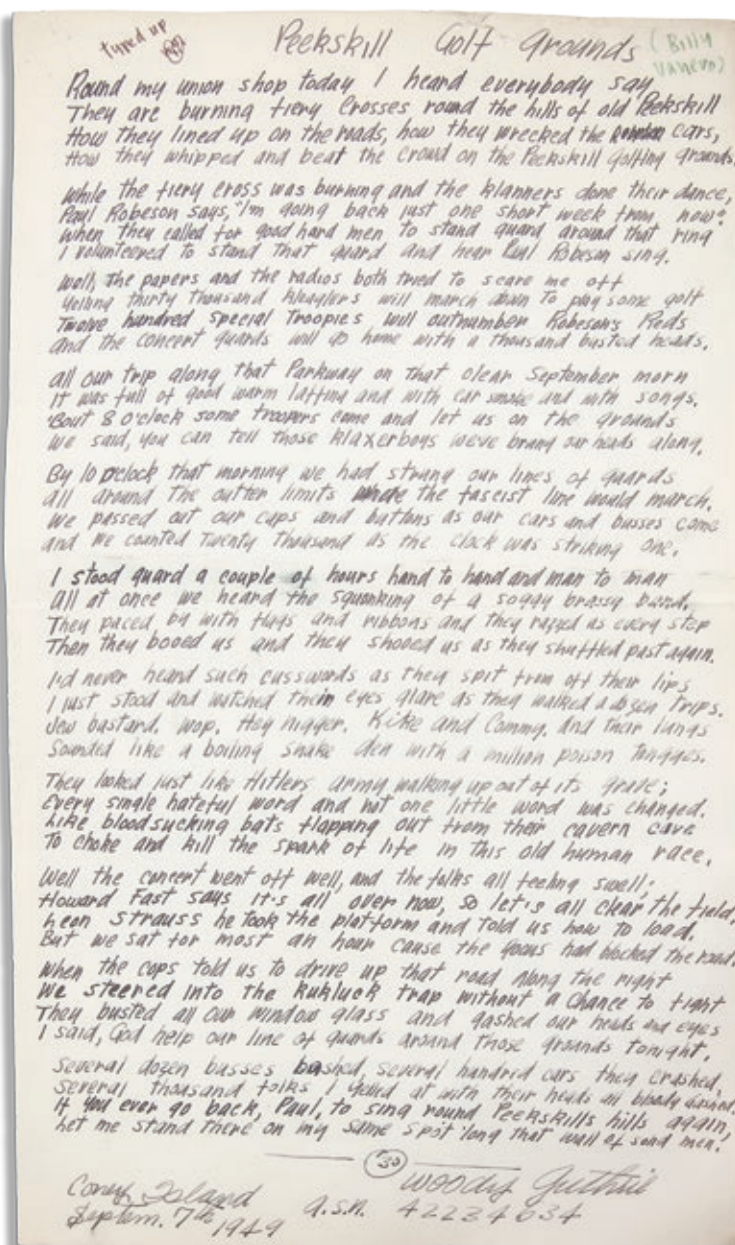 tyred up
Peekskill Golf Grounds
(Billy
Vanero)
Round my union shop today I heard everybody say
They are burning fiery Crosses round the hills of old Peekskill
How they lined up on the roads, how they wrecked the cars,
How they whipped and beat the crowd on the Peekskill golfing grounds.
While the fiery cross was burning and the klanners done their dance,
Paul Robeson says, "I'm going back just one short week from now".
When they called for good hard men to stand guard around that ring
I volunteered to stand that guard and hear Paul Robeson sing.
Well, The papers and the radios both tried to scare me off
Yelling thirty thousand Kleaglers will march down To play some golf
Twelve hundred Special Troopies will outnumber Robesons Reds
and the concert guards will go home with a thousand busted heads.
all our trip along that Parkway on that clear September morn
It was full of good warm laffing and with car smoke and with songs.
'Bout 8 o'clock some troopers come and let us on the grounds
We said, you can tell those klaxerboys weve brung our heads along.
By 10 o'clock that morning we had strung our lines of guards
all around The outter limits where the fascist line would march.
We passed out our caps and buttons as our cars and busses come
and we counted Twenty Thousand as the clock was striking one.
I stood guard a couple of hours hand to hand and man to man
all at once we heard the squonking of a soggy brassy band.
They paced by with flags and ribbons and they razzed as every step
Then they booed us and they shooed us as they shuffled past again.
I'd never heard such cusswords as they spit from off their lips
I just stood and watched their eyes glare as they walked a dozen trips.
Jew bastard. Wop. Hey nigger. Kike and Commy. And their lungs
Sounded like a boiling snake den with a million poison tongges.
They looked just like Hitlers army walking up out of its grave;
Every single hateful word and not one little word was changed.
Like bloodsucking bats flapping out from their cavern cave
To choke and kill the spark of life in this old human race.
Well the concert went off well, and the folks all feeling swell;
Howard Fast says it's all over now, so let's all clear the field,
Leon Strauss he took the platform and told us how to load.
But we sat for most an hour cause the goons had blocked the road.
When the cops told us to drive up that road along the right
We steered into the kukluck trap without a chance to fight
They busted all our window glass and gashed our heads and eyes
I said, God help our line of guards around those grounds tonight.
Several dozen busses bashed, several hundrid cars they crashed,
Several thousand folks I yelled at with their heads all bloody
If you ever go back, Paul, to sing round Peekskills hills again,
Let me stand there on my same spot 'long that wall of sond men.
30
Coney Island
Septem. 7th 1949
Woody Guthrie
a.s.n. 42234634